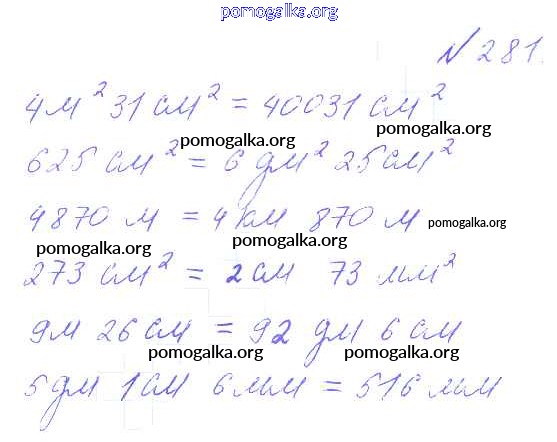 pomogalka.org
№ 281.
4 м² 31 см² = 40031 см²
pomogalka.org
pomogalka.org
625 см² = 6 дм² 25 см²
4870 м = 4 км 870 м
pomogalka.org
pomogalka.org
273 см² = 2 см 73 мм²
9 м 26 см = 92 дм 6 см
pomogalka.org
pomogalka.org
5 дм 1 см 6 мм = 516 мм